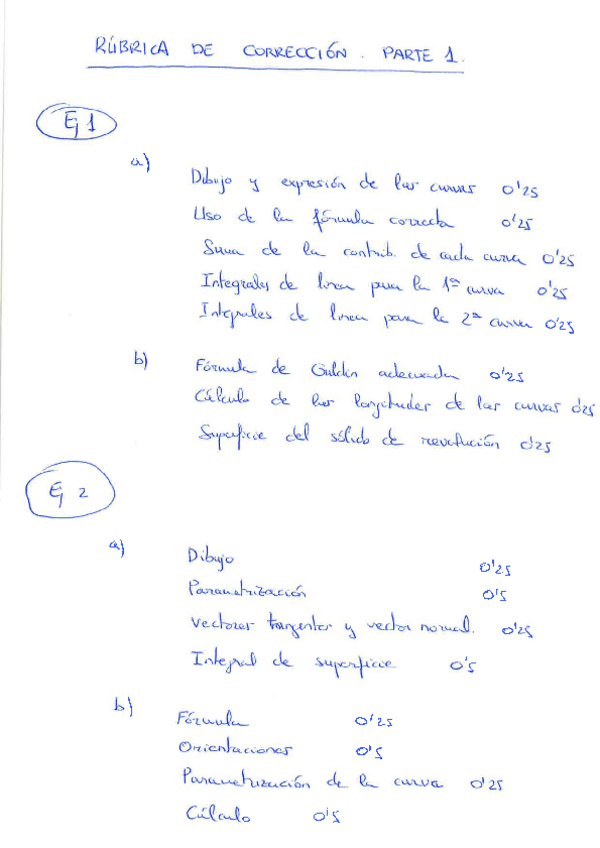 RÚBRICA DE CORRECCIÓN. PARTE 1.
Ej 1
a)
Dibujo y expresión de las curvas 0'25
Uso de la fórmula correcta 0'25
Suma de la contrib. de cada curva 0'25
Integrales de línea para la 1ª curva 0'25
Integrales de línea para la 2ª curva 0'25
b)
Fórmula de Guldin adecuada 0'25
Cálculo de las longitudes de las curvas 0'25
Superficie del sólido de revolución 0'25
Ej 2
a)
Dibujo 0'25
Parametrización 0'5
Vectores tangentes y vector normal. 0'25
Integral de superficie 0'5
b)
Fórmula 0'25
Orientaciones 0'5
Parametrización de la curva 0'25
Cálculo 0'5